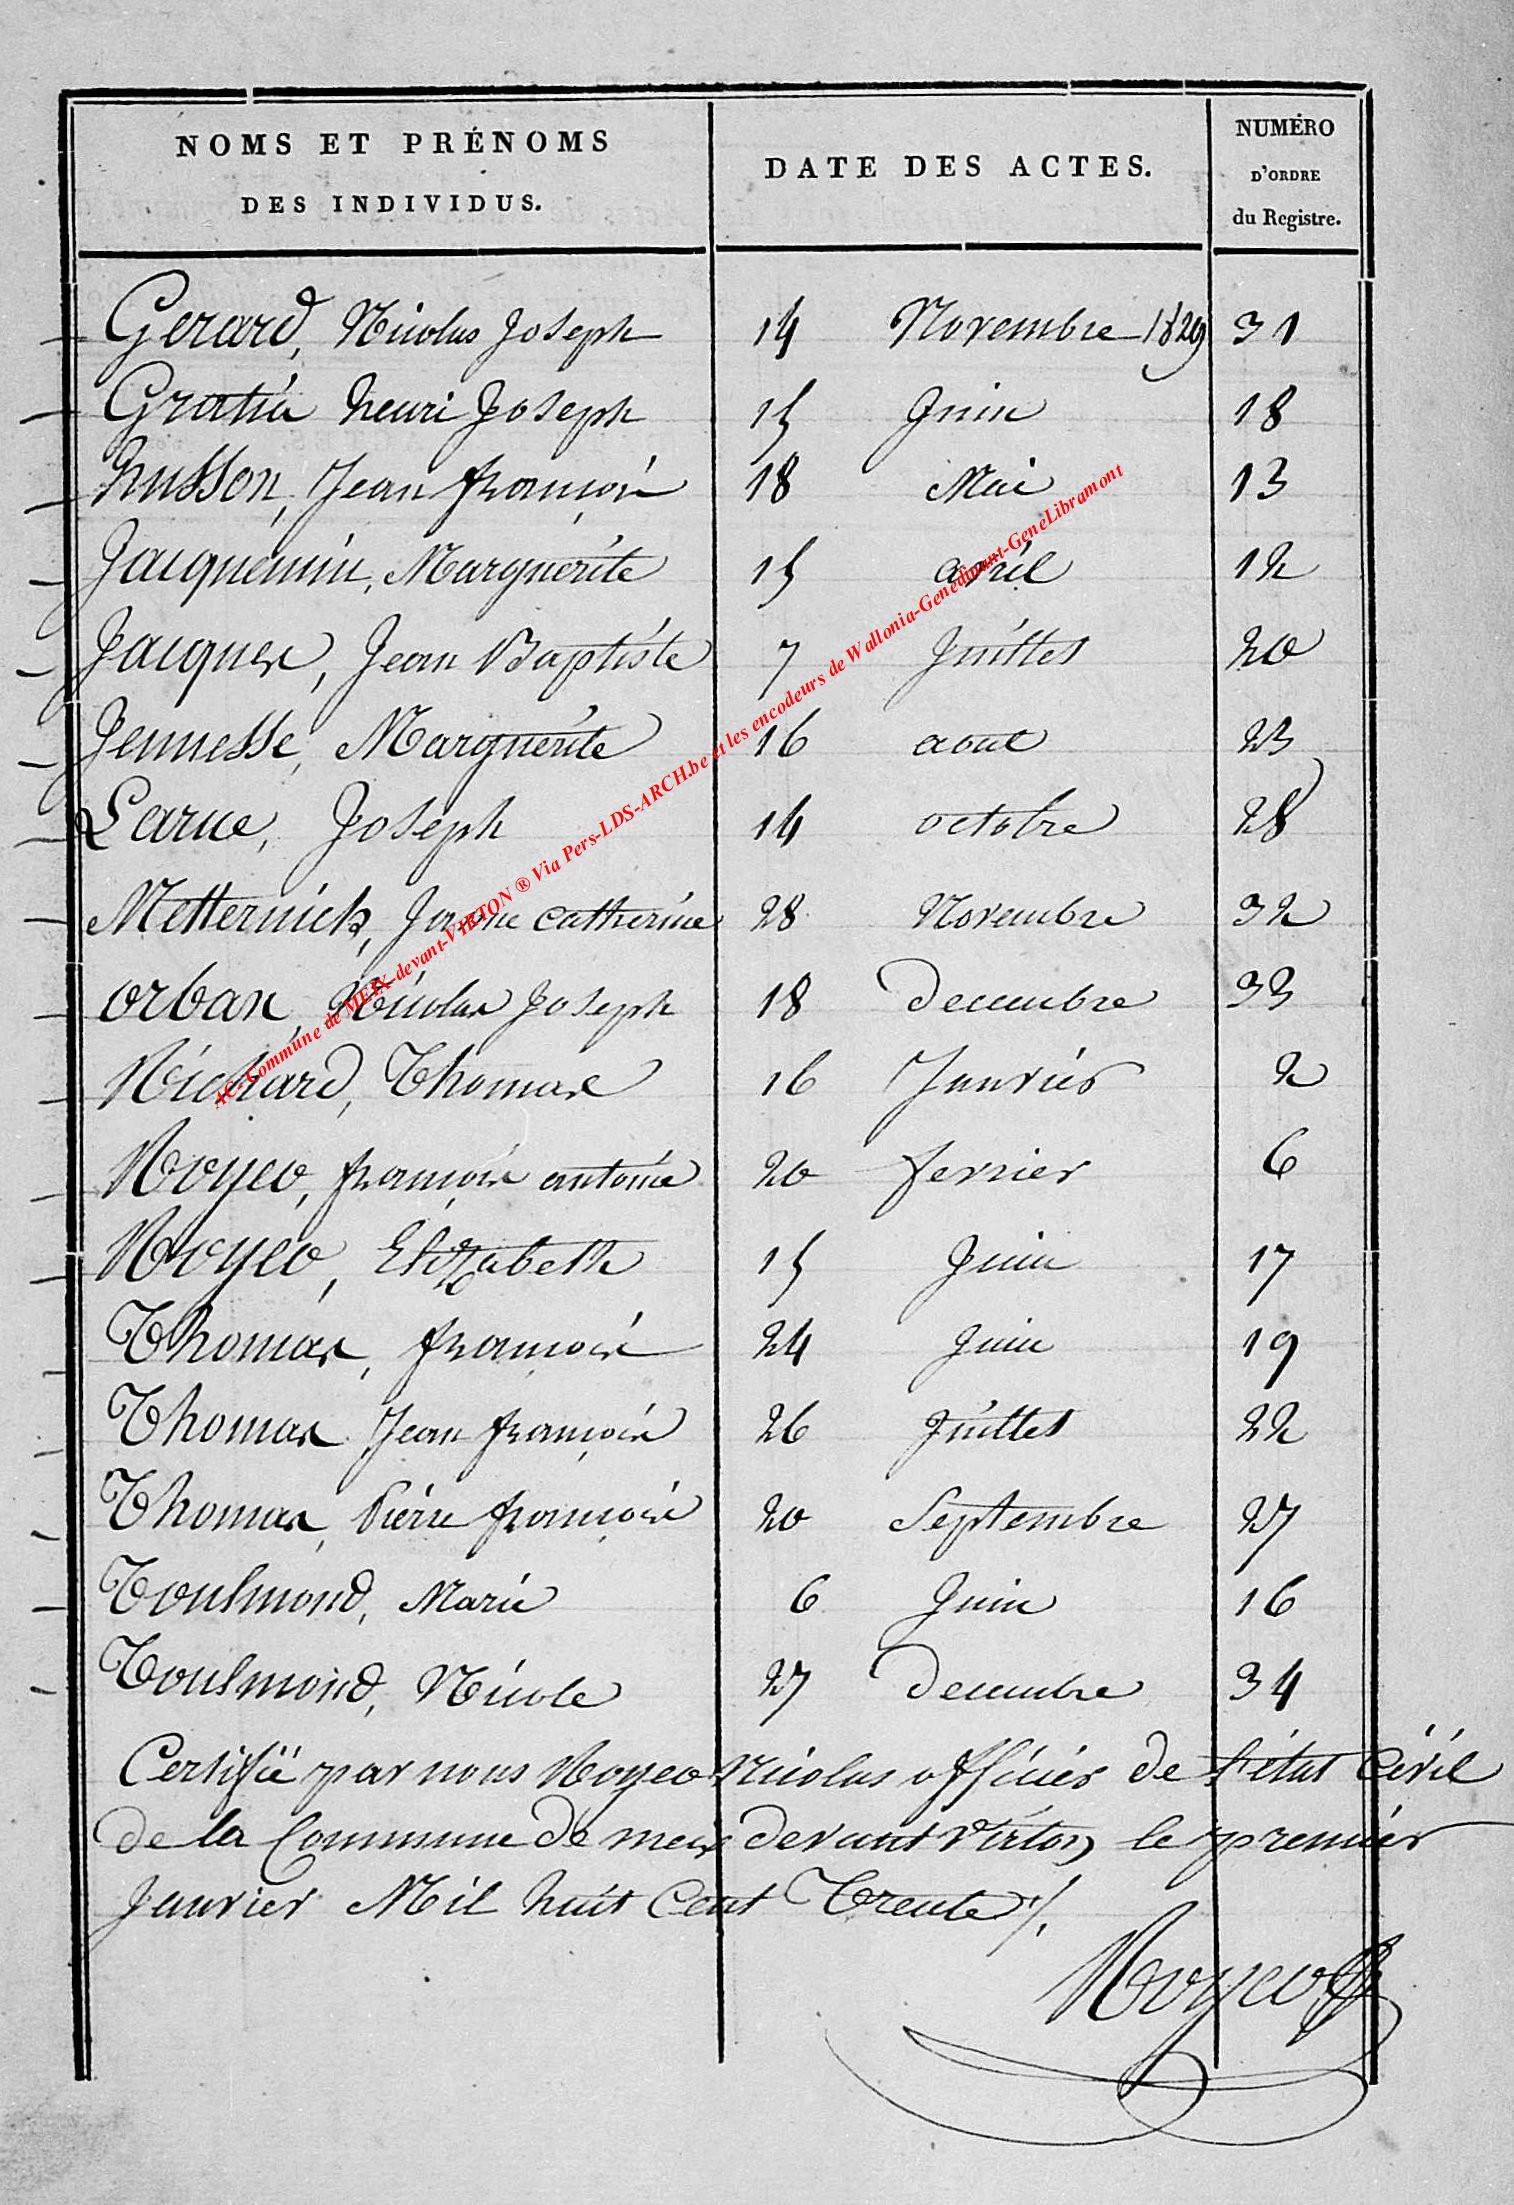 NOMS ET PRÉNOMS
DES INDIVIDUS.
DATE DES ACTES.
NUMÉRO
D'ORDRE
du Registre.
Gerard, Nicolas Joseph 14 Novembre 1829 31
Gratia henri Joseph 15 Juin 18
husson, Jean françois 18 Mai 13
Jacquemin, Marguerite 15 avril 12
Jacques, Jean Baptiste 7 Juillet 20
Jeunesse, Marguerite 16 aout 23
Larue, Joseph 14 octobre 28
Metternich, Jeanne catherine 28 Novembre 32
orban, Nicolas Joseph 18 decembre 33
Richard, Thomas 16 Janvier 2
Royer, françois antoine 20 fevrier 6
Royer, Elizabeth 15 Juin 17
Thomas, françois 24 Juin 19
Thomas Jean françois 26 Juillet 22
Thomas, Pierre françois 20 Septembre 27
Toulmond, Marie 6 Juin 16
Toulmond, Nicole 27 decembre 34
Certifié par nous Royer Nicolas officier de l'état Civil
de la Commune de meix devant Virton le premier
Janvier Mil huit Cent Trente /.
Royer
AC- Commune de MEIX-devant-VIRTON ® Via Pers-LDS-ARCH.be et les encodeurs de Wallonia-Genedinant-GeneLibramont